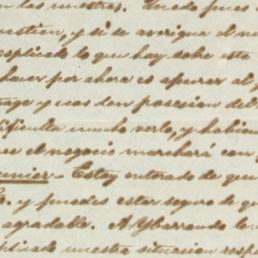 en las nuestras. Quedo pues
uestion, y si se averigua el
esplicado lo que hay sobre este
hacer por ahora es apurar el
trage y nos den posesion del
dificulta mucho verlo, y habien
el negocio marchará con
unier - Estoy enterado de que
y puedes estar seguro de que
agradable. A Ybarrondo le
plicado nuestra situacion resp